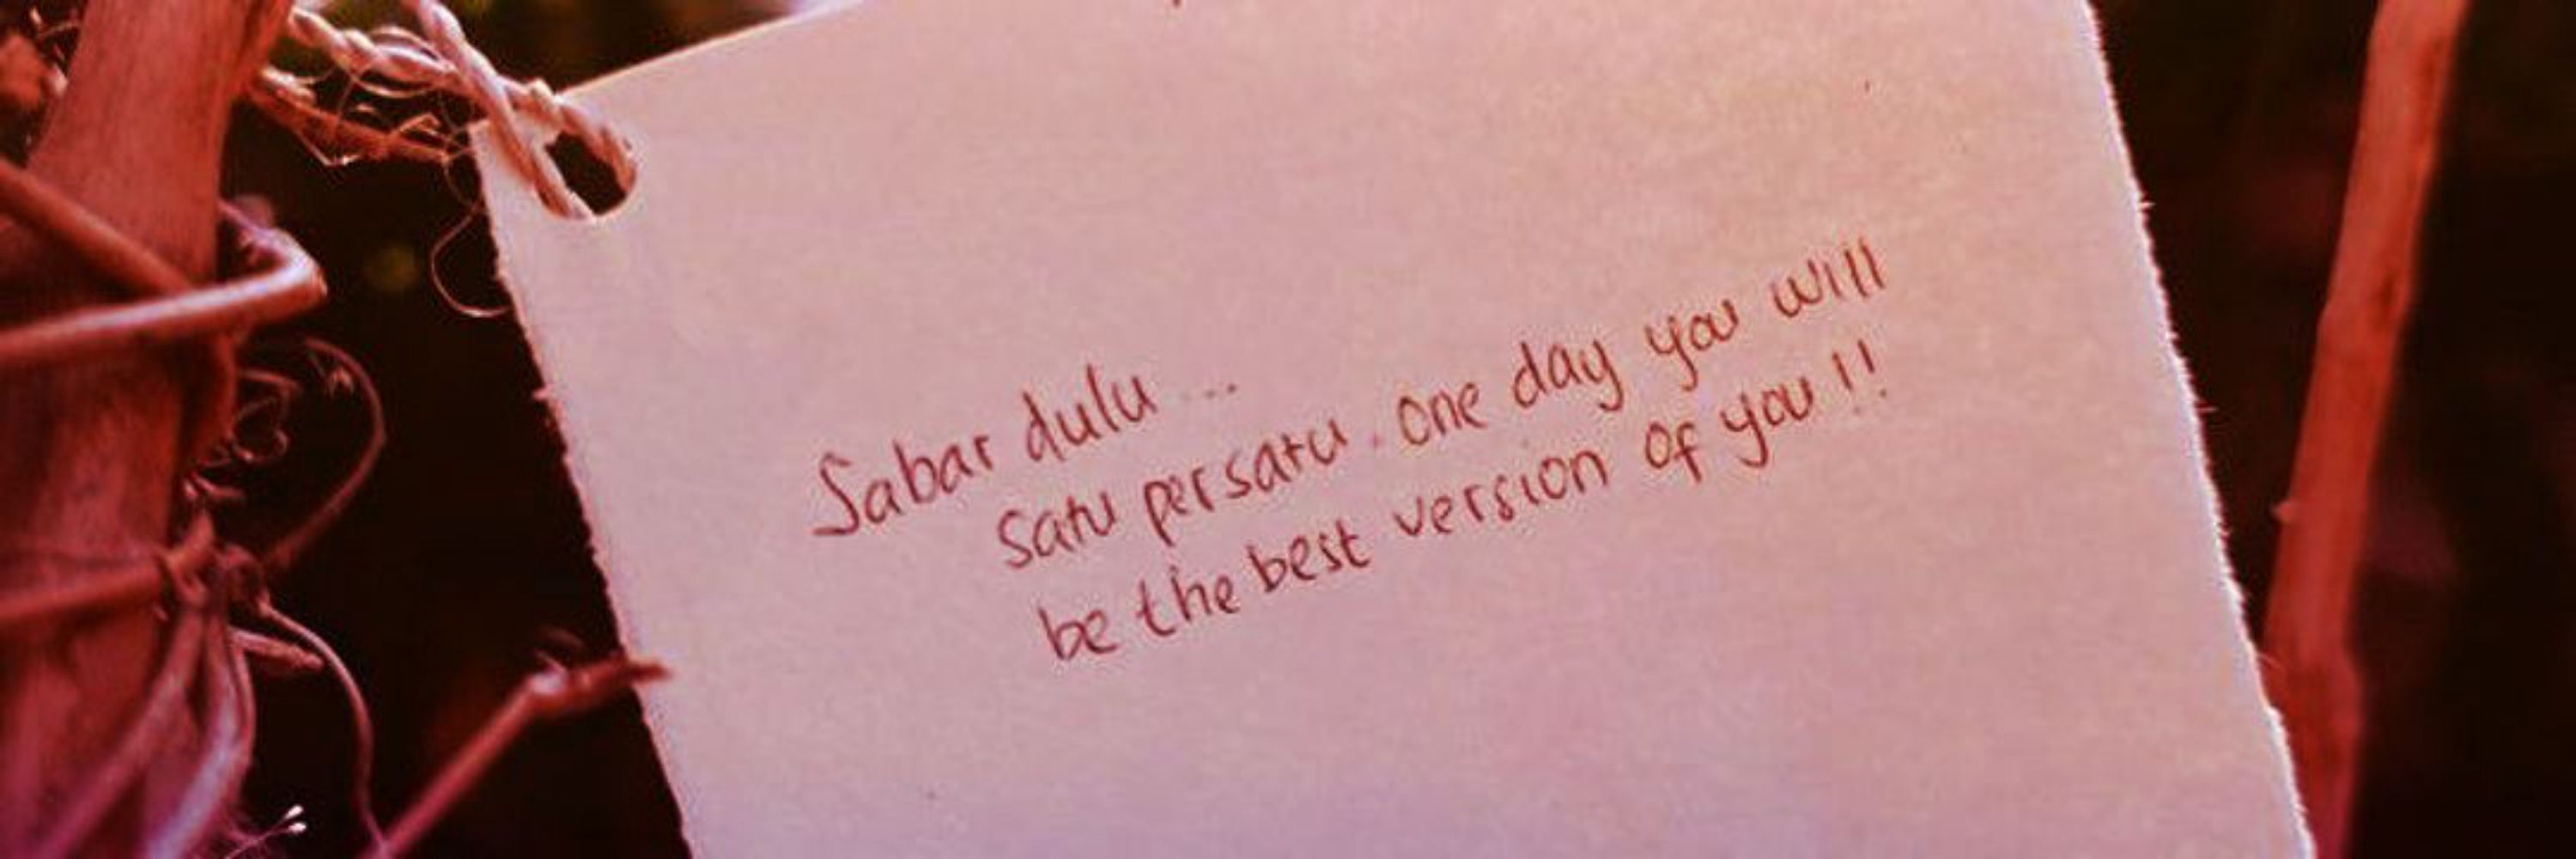 Sabar dulu ...
satu persatu. One day you will
be the best version of you !!